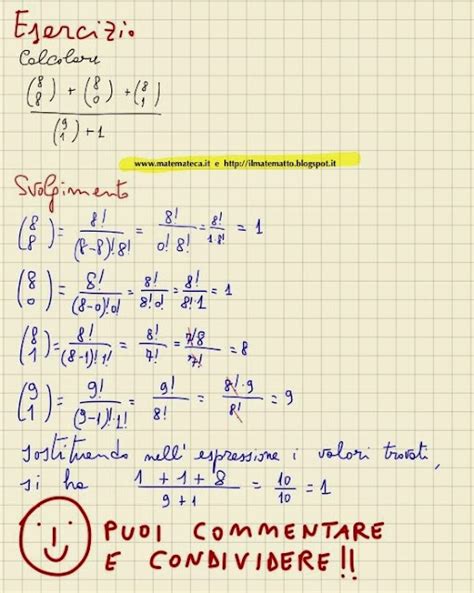 Esercizio
Calcolare
(8 8) + (8 0) + (8 1)
(9 1) + 1
www.matemateca.it e http://ilmatematto.blogspot.it
Svolgimento
(8 8) = 8! / (8-8)! 8! = 8! / 0! 8! = 8! / 1·8! = 1
(8 0) = 8! / (8-0)! 0! = 8! / 8! 0! = 8! / 8!·1 = 1
(8 1) = 8! / (8-1)! 1! = 8! / 7! = 7!8 / 7! = 8
(9 1) = 9! / (9-1)!·1! = 9! / 8! = 8!·9 / 8! = 9
sostituendo nell'espressione i valori trovati,
si ha 1+1+8 / 9+1 = 10 / 10 = 1
PUOI COMMENTARE
E CONDIVIDERE!!